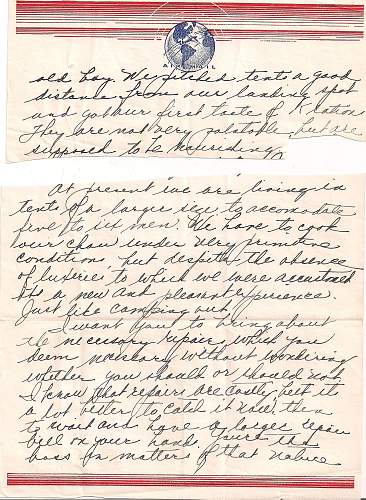 AIR MAIL
old hay. We pitched tents a good
distance from our landing spot
and got our first taste of K ration
They are not very palatable, but are
supposed to be nourishing
At present we are living in
tents of a larger size to accomodate
five to six men. We have to cook
our chow under very primitive
conditions, but despite the absence
of luxerie to which we were accustomed
its a new and pleasant experience.
Just like camping out.
I want you to bring about
the necessary repairs which you
deem necessary without wondering
whether you should or should not.
I know that repairs are costly but its
a lot better to catch it now then
to wait and have a larger repair
bill on your hand. Youre the
boss in matters of that nature